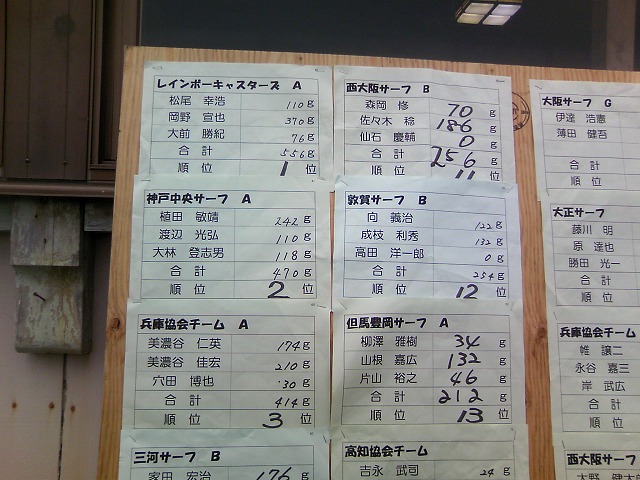 レインボーキャスターズ A
松尾 幸浩 110 g
岡野 宣也 370 g
大前 勝紀 76 g
合計 556 g
順位 1 位
神戸中央サーフ A
植田 敏靖 242 g
渡辺 光弘 110 g
大林 登志男 118 g
合計 470 g
順位 2 位
兵庫協会チーム A
美濃谷 仁英 174 g
美濃谷 佳宏 210 g
穴田 博也 30 g
合計 414 g
順位 3 位
三河サーフ B
家田 宏治 176 g
西大阪サーフ B
森岡 修 70 g
佐々木 稔 186 g
仙石 慶輔 0 g
合計 256 g
順位 11 位
敦賀サーフ B
向 義治 122 g
成枝 利秀 132 g
高田 洋一郎 0 g
合計 254 g
順位 12 位
但馬豊岡サーフ A
柳澤 雅樹 34 g
山根 嘉広 132 g
片山 裕之 46 g
合計 212 g
順位 13 位
高知協会チーム
吉永 武司 24 g
大阪サーフ G
伊達 浩憲
薄田 健吾
合計
順位
大正サーフ
藤川 明
原 達也
勝田 光一
合計
順位
兵庫協会チーム
帷 譲二
永谷 嘉三
岸 武広
合計
順位
西大阪サーフ